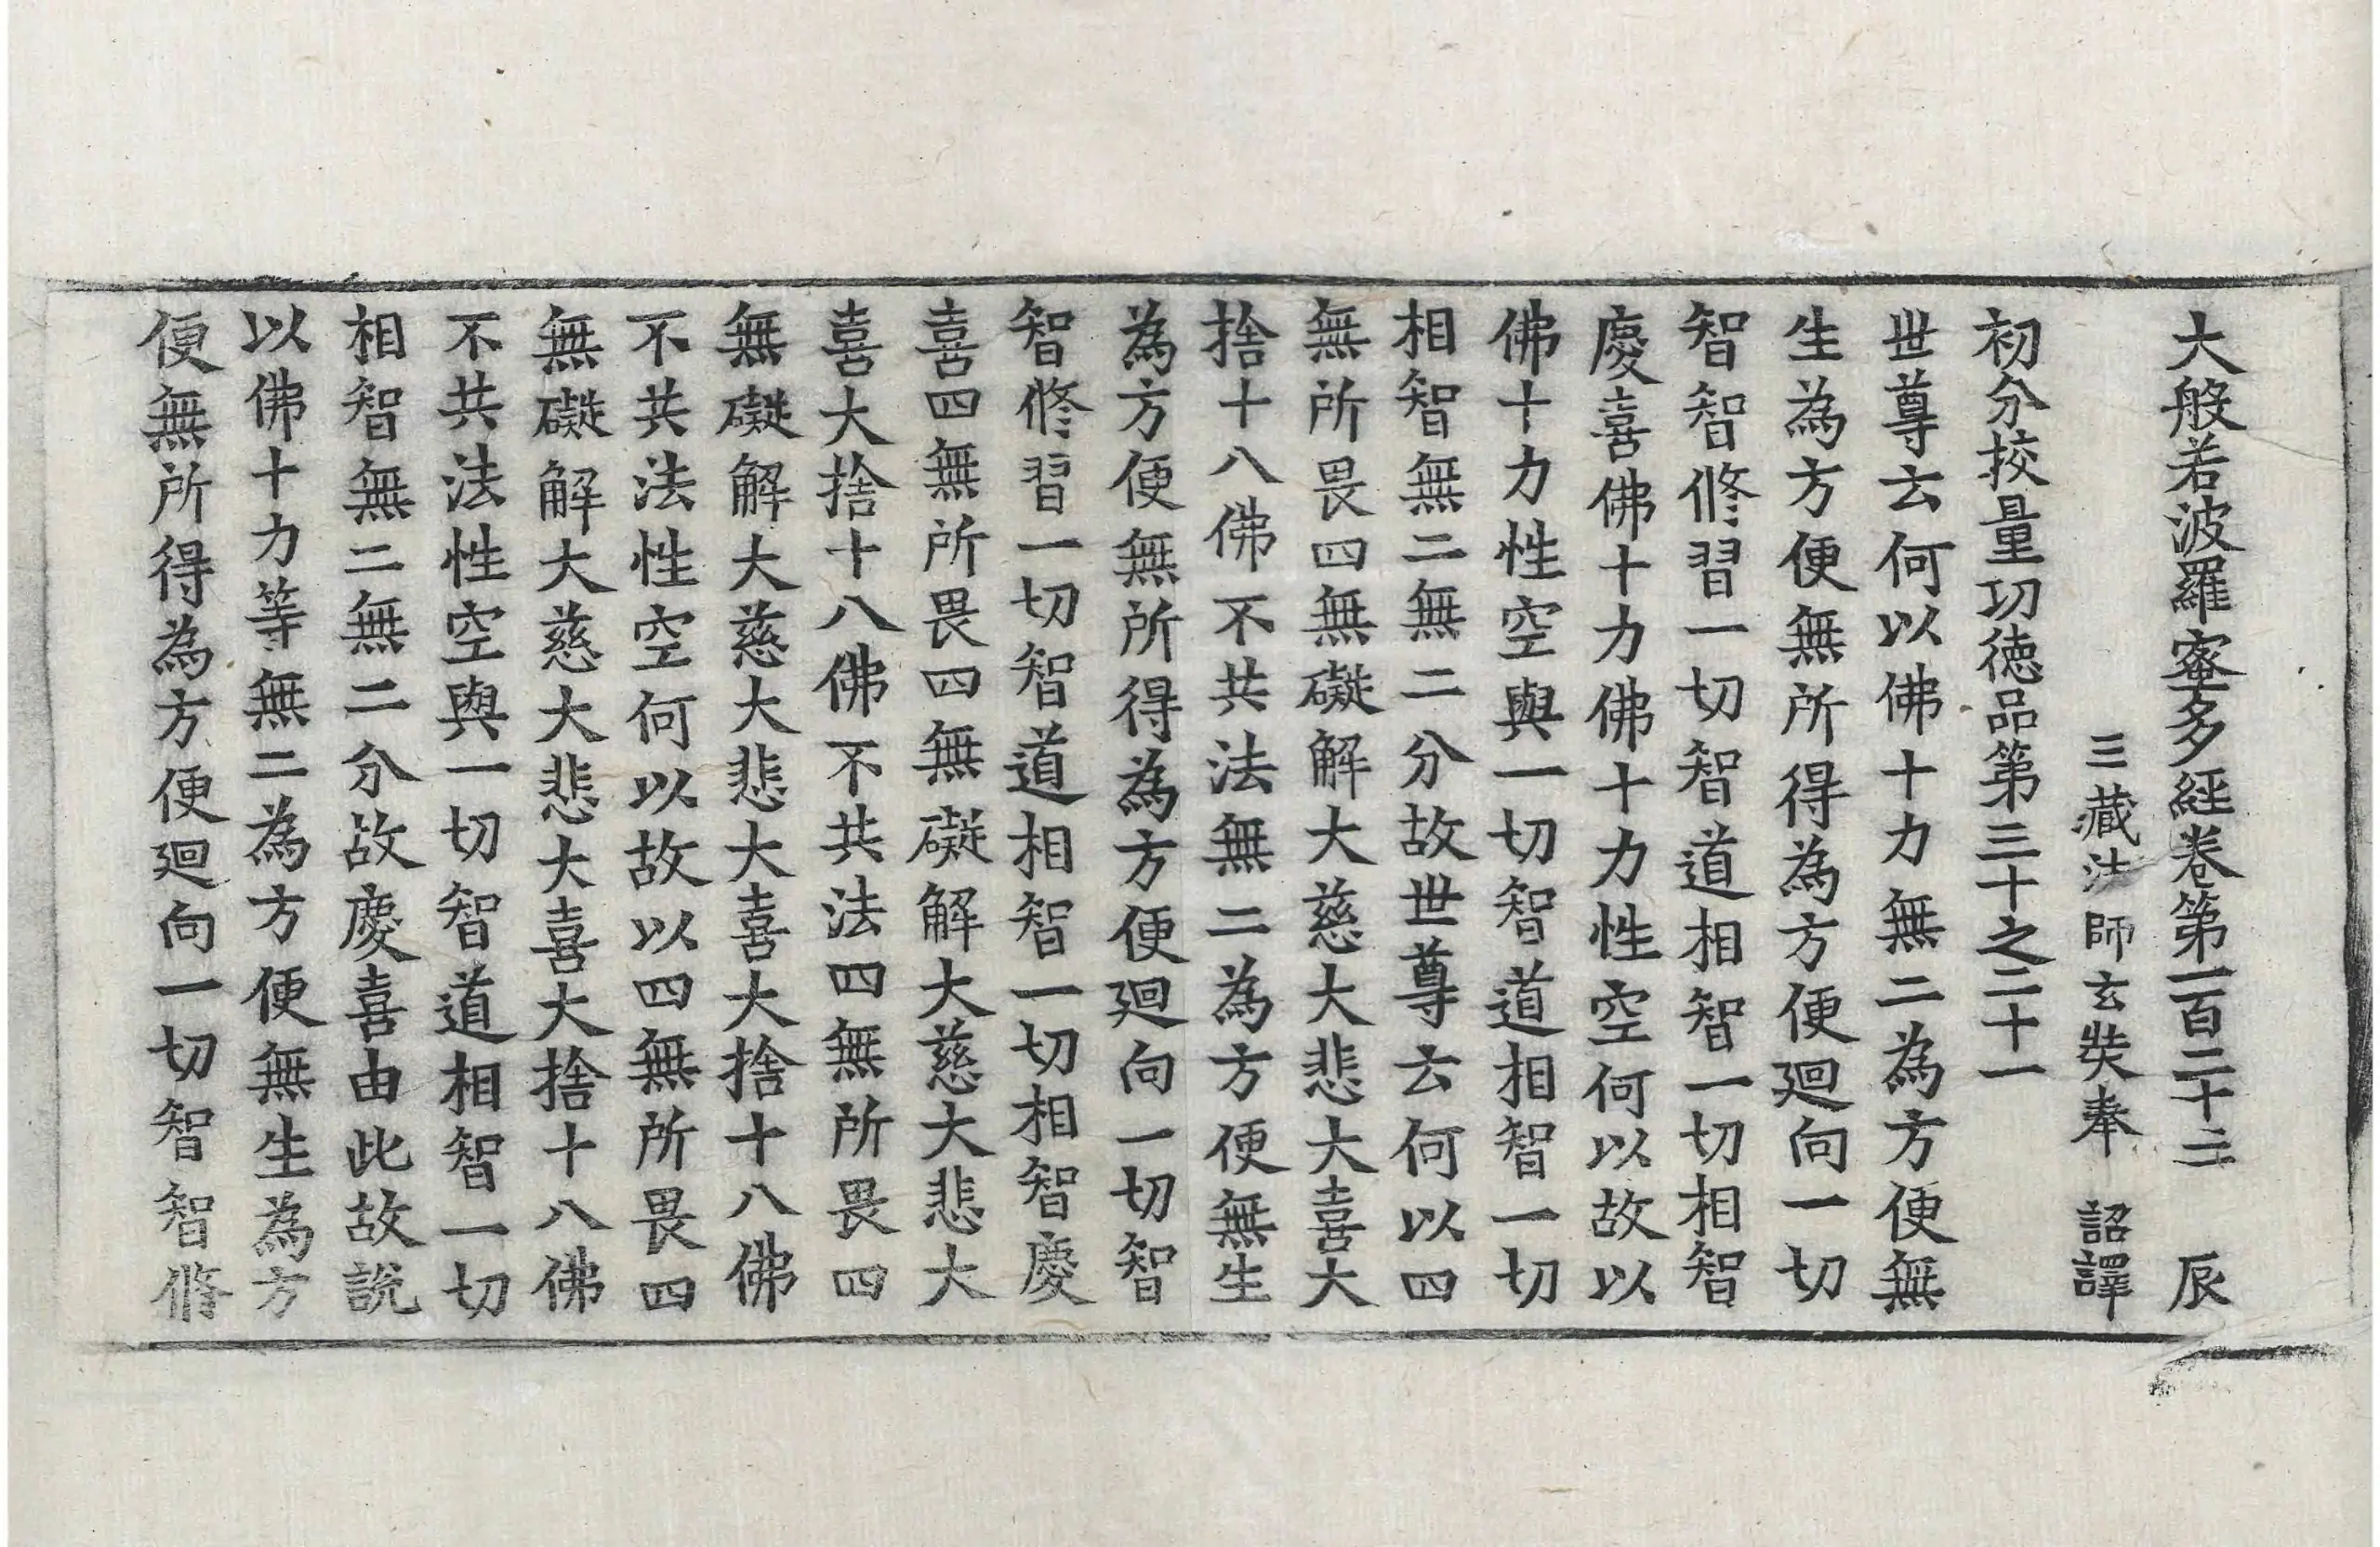 大般若波羅蜜多經卷第一百二十二 辰
三藏法師玄奘奉 詔譯
初分挍量功徳品第三十之二十一
世尊云何以佛十力無二為方便無
生為方便無所得為方便迴向一切
智智修習一切智道相智一切相智
慶喜佛十力佛十力性空何以故以
佛十力性空與一切智道相智一切
相智無二無二分故世尊云何以四
無所畏四無礙解大慈大悲大喜大
捨十八佛不共法無二為方便無生
為方便無所得為方便迴向一切智
智修習一切智道相智一切相智慶
喜四無所畏四無礙解大慈大悲大
喜大捨十八佛不共法四無所畏四
無礙解大慈大悲大喜大捨十八佛
不共法性空何以故以四無所畏四
無礙解大慈大悲大喜大捨十八佛
不共法性空與一切智道相智一切
相智無二無二分故慶喜由此故説
以佛十力等無二為方便無生為方
便無所得為方便迴向一切智智修